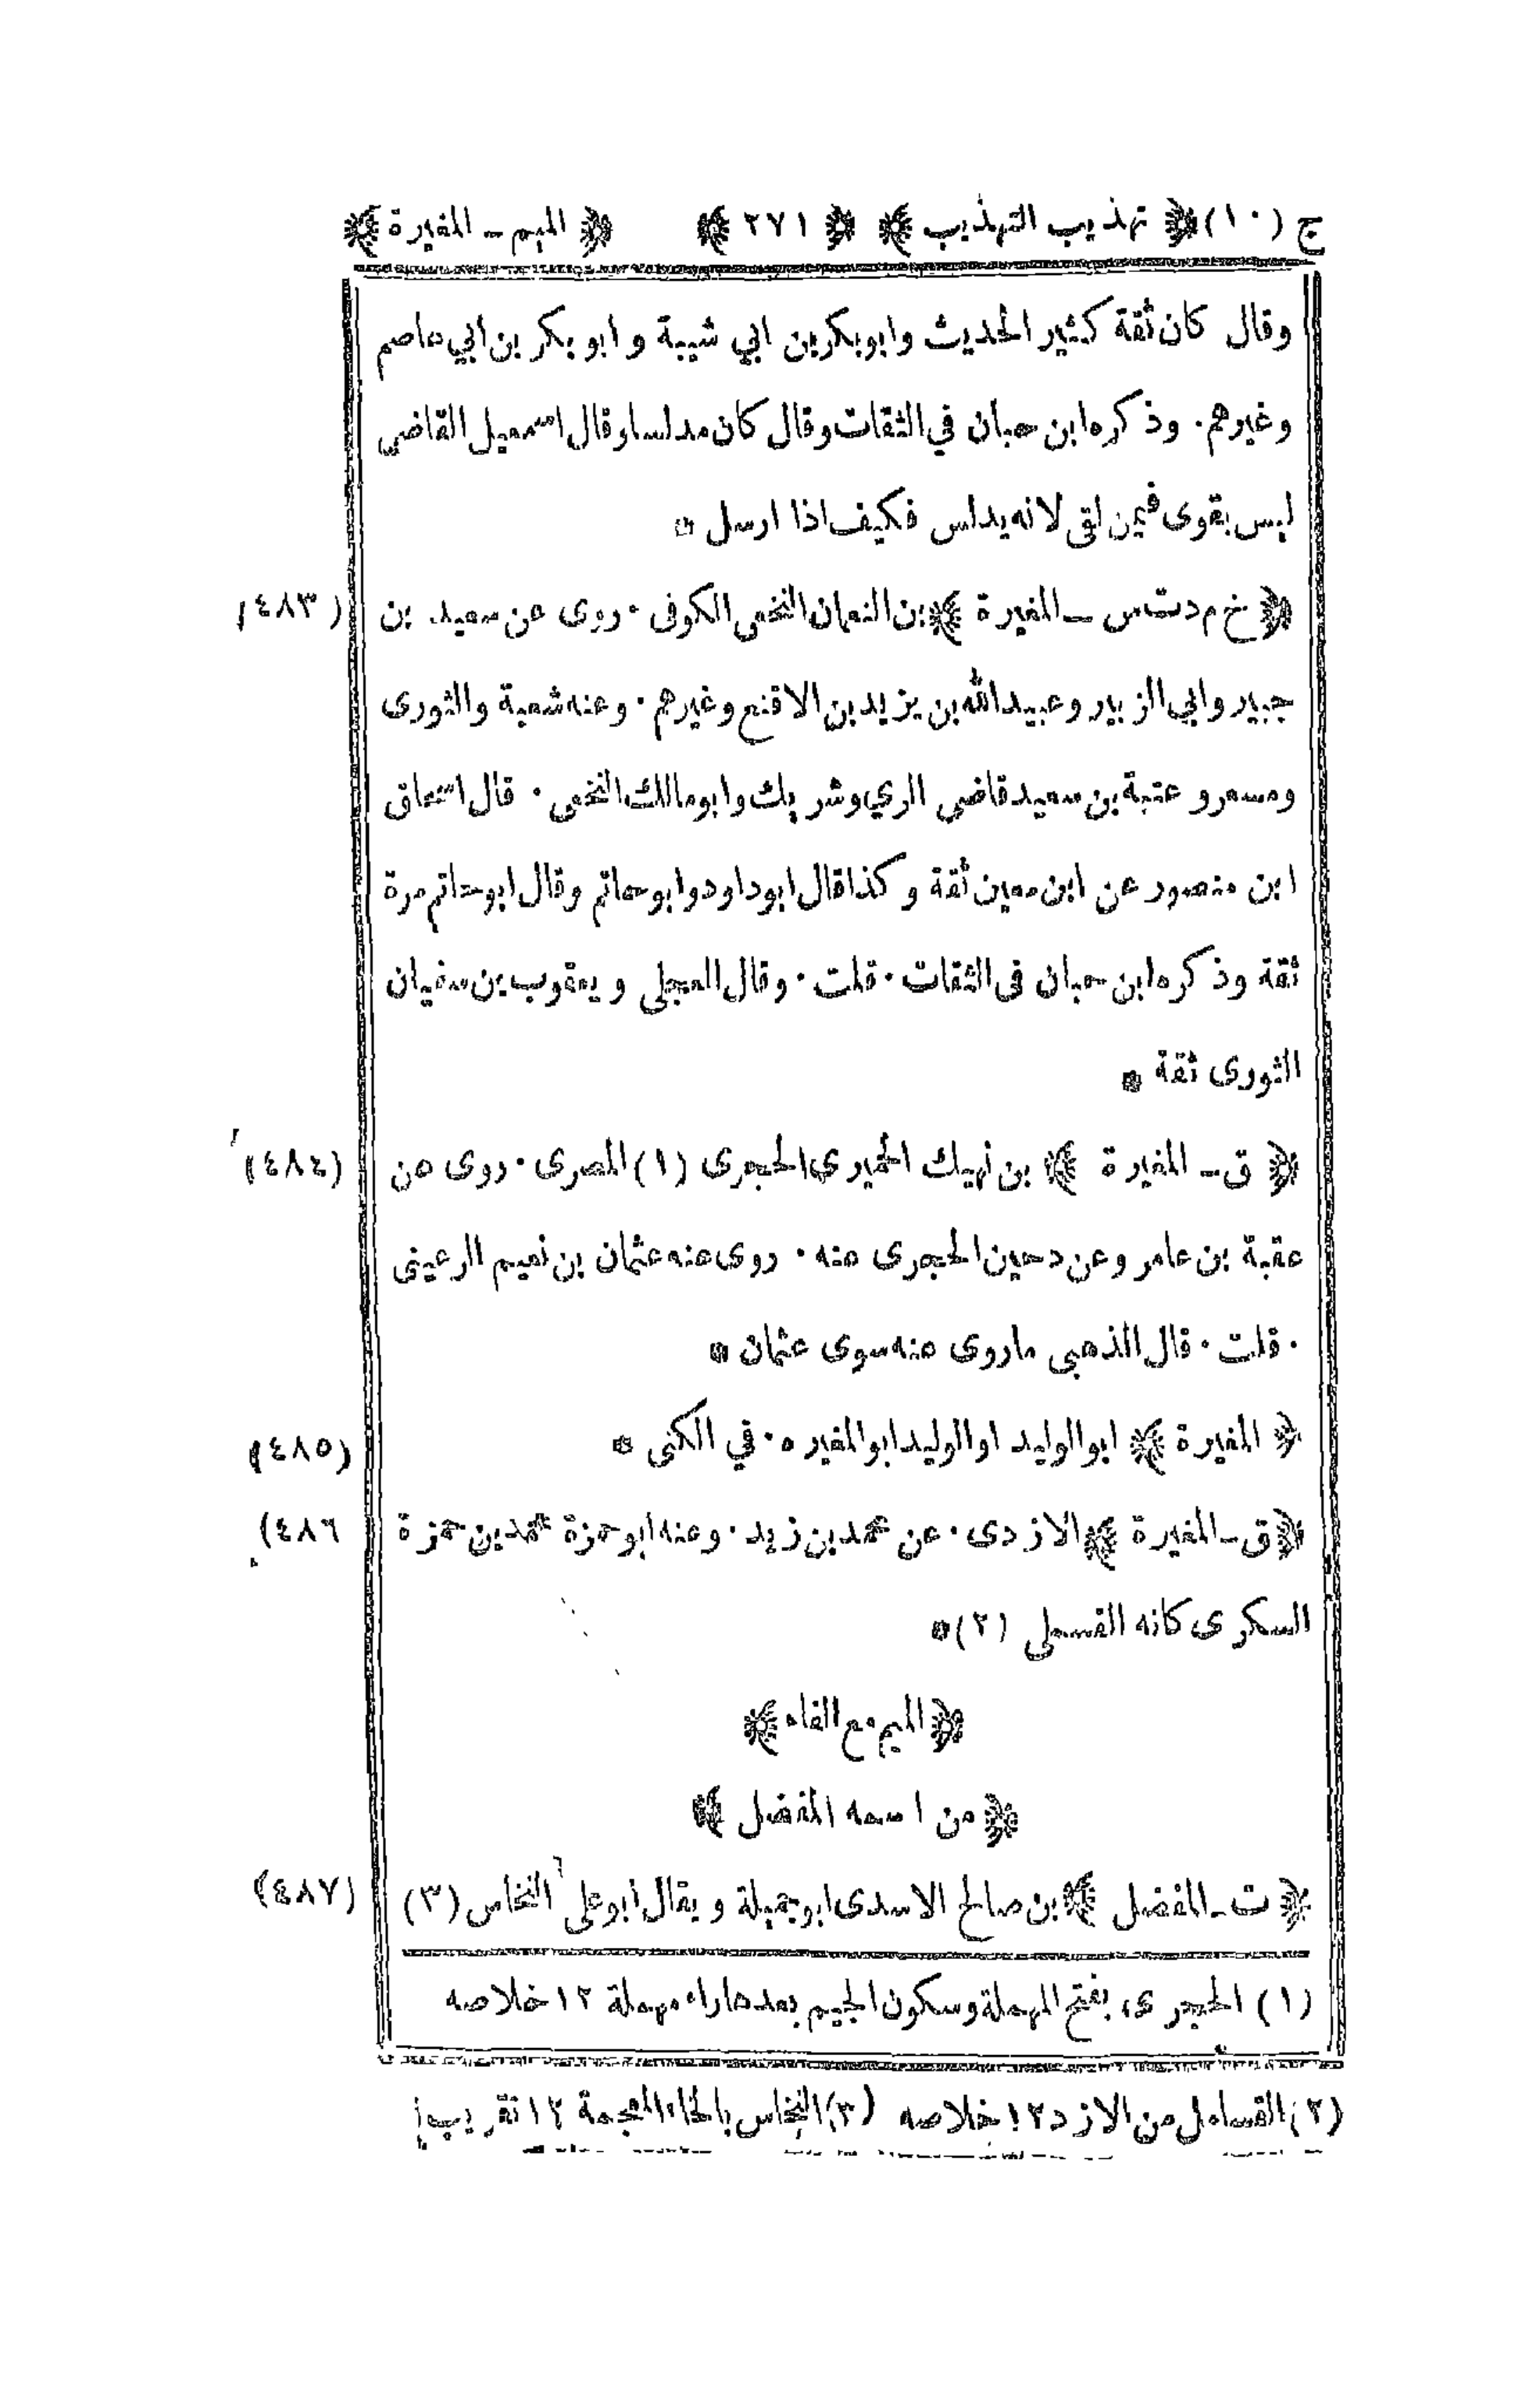 ج (١٠) ﴿ تهذيب التهذيب ﴾ ﴿ ٢٧١ ﴾ ﴿ الميم - المغيرة ﴾
وقال كان ثقة كثير الحديث وابوبكر بن ابي شيبة و ابو بكر بن ابي عاصم
وغيرهم . وذكره ابن حبان في الثقات وقال كان مدلسا وقال اسمعيل القاضي
ليس بقوى فيمن لقى لانه يدلس فكيف اذا ارسل *
﴿ خ م د ت س - المغيرة ﴾ بن النعمان النخعى الكوفى . روى عن سعيد بن (٤٨٣)
جبير وابي الزبير وعبيدالله بن يزيد بن الاقنع وغيرهم . وعنه شعبة والثورى
ومسعر و عتبة بن سعيد قاضي الري وشريك وابومالك النخعى . قال اسحاق
ابن منصور عن ابن معين ثقة و كذا قال ابوداود وابوحاتم وقال ابوحاتم مرة
ثقة وذكره ابن حبان فى الثقات . قلت . وقال العجلى و يعقوب بن سفيان
الثورى ثقة *
﴿ ق - المغيرة ﴾ بن نهيك الحميرى الحجرى (١) المصرى . روى عن (٤٨٤)
عقبة بن عامر وعن دحين الحجرى عنه . روى عنه عثمان بن نعيم الرعينى
. قلت . قال الذهبى ماروى عنه سوى عثمان *
﴿ المغيرة ﴾ ابوالوليد اوالوليد ابوالمغيره . في الكنى * (٤٨٥)
﴿ ق - المغيرة ﴾ الازدى . عن محمد بن زيد . وعنه ابو حمزة محمد بن حمزة (٤٨٦
السكرى كانه القسملى (٢) *
﴿ الميم مع الفاء ﴾
﴿ من اسمه المفضل ﴾
﴿ ت - المفضل ﴾ بن صالح الاسدى ابو جميلة و يقال ابو على النخاس (٣) (٤٨٧)
(١) الحجرى، بفتح المهملة وسكون الجيم بعدها راء مهملة ١٢ خلاصه
(٢) القسامل من الازد ١٢ خلاصه (٣) النخاس بالخاء المعجمة ١٢ تقريب